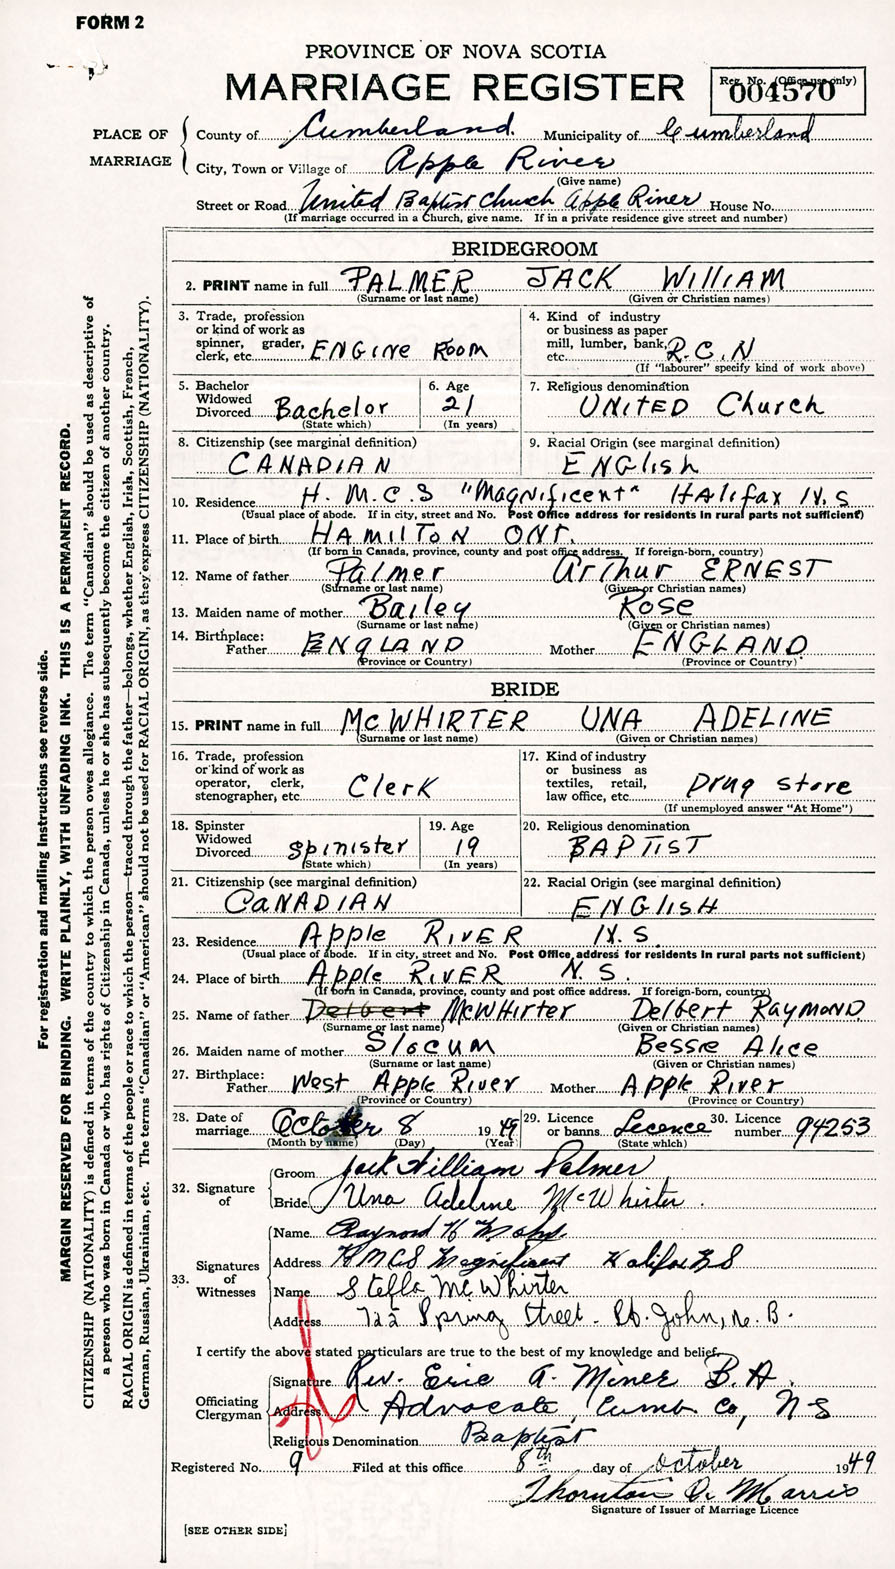 FORM 2
PROVINCE OF NOVA SCOTIA
MARRIAGE REGISTER
Reg. No. (Office use only)
004570
PLACE OF MARRIAGE
County of Cumberland. Municipality of Cumberland
City, Town or Village of Apple River
(Give name)
Street or Road United Baptist Church Apple River House No.
(If marriage occurred in a Church, give name. If in a private residence give street and number)
BRIDEGROOM
2. PRINT name in full PALMER JACK WILLIAM
(Surname or last name) (Given or Christian names)
3. Trade, profession
or kind of work as
spinner, grader,
clerk, etc. ENGINE ROOM
4. Kind of industry
or business as paper
mill, lumber, bank,
etc. R.C.N
(If "labourer" specify kind of work above)
5. Bachelor
Widowed
Divorced Bachelor
(State which)
6. Age
21
(In years)
7. Religious denomination
UNITED Church
8. Citizenship (see marginal definition)
CANADIAN
9. Racial Origin (see marginal definition)
ENGlish
10. Residence H. M. C. S "Magnificent" Halifax N. S
(Usual place of abode. If in city, street and No. Post Office address for residents in rural parts not sufficient)
11. Place of birth HAMILTON ONT.
(If born in Canada, province, county and post office address. If foreign-born, country)
12. Name of father Palmer Arthur ERNEST
(Surname or last name) (Given or Christian names)
13. Maiden name of mother Bailey Rose
(Surname or last name) (Given or Christian names)
14. Birthplace:
Father ENGLAND Mother ENGLAND
(Province or Country) (Province or Country)
BRIDE
15. PRINT name in full McWHIRTER UNA ADELINE
(Surname or last name) (Given or Christian names)
16. Trade, profession
or kind of work as
operator, clerk,
stenographer, etc. Clerk
17. Kind of industry
or business as
textiles, retail,
law office, etc. Drug store
(If unemployed answer "At Home")
18. Spinster
Widowed
Divorced spinister
(State which)
19. Age
19
(In years)
20. Religious denomination
BAPTIST
21. Citizenship (see marginal definition)
CANADIAN
22. Racial Origin (see marginal definition)
ENGLISH
23. Residence Apple RIVER N. S.
(Usual place of abode. If in city, street and No. Post Office address for residents in rural parts not sufficient)
24. Place of birth Apple RIVER N. S.
(If born in Canada, province, county and post office address. If foreign-born, country)
25. Name of father Delbert McWhirter Delbert RAYMOND
(Surname or last name) (Given or Christian names)
26. Maiden name of mother Slocum Bessie Alice
(Surname or last name) (Given or Christian names)
27. Birthplace:
Father West Apple River Mother Apple River
(Province or Country) (Province or Country)
28. Date of
marriage October 8 19 49
(Month by name) (Day) (Year)
29. Licence
or banns Licence
(State which)
30. Licence
number 94253
32. Signature
of
Groom Jack William Palmer
Bride Una Adeline McWhirter.
33. Signatures
of
Witnesses
Name Raymond H
Address HMCS Magnificent Halifax NS
Name Stella McWhirter
Address 722 Spring Street - St. John, N. B.
I certify the above stated particulars are true to the best of my knowledge and belief.
Officiating
Clergyman
Signature Rev. Eric A. Miner B.A.
Address Advocate, Cumb. Co, N S
Religious Denomination Baptist
Registered No. 9 Filed at this office 8th day of October 1949
Thornton D. Morris
Signature of Issuer of Marriage Licence
[SEE OTHER SIDE]
For registration and mailing instructions see reverse side.
MARGIN RESERVED FOR BINDING. WRITE PLAINLY, WITH UNFADING INK. THIS IS A PERMANENT RECORD.
CITIZENSHIP (NATIONALITY) is defined in terms of the country to which the person owes allegiance. The term "Canadian" should be used as descriptive of
a person who was born in Canada or who has rights of Citizenship in Canada, unless he or she has subsequently become the citizen of another country.
RACIAL ORIGIN is defined in terms of the people or race to which the person—traced through the father—belongs, whether English, Irish, Scottish, French,
German, Russian, Ukrainian, etc. The terms "Canadian" or "American" should not be used for RACIAL ORIGIN, as they express CITIZENSHIP (NATIONALITY).